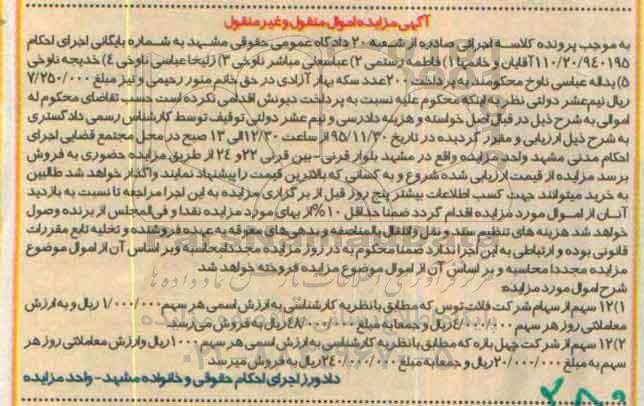 آگهی مزایده اموال منقول و غیر منقول
به موجب پرونده کلاسه اجرائی صادره از شعبه ۲۰ دادگاه عمومی حقوقی مشهد به شماره بایگانی اجرای احکام
۱۱۰/۲۰/۹۴۰۱۹۵ آقایان و خانمها ۱) فاطمه رستمی ۲) عباسعلی مباشر ناوخی ۳) زلیخا عباسی ناوخی ۴) خدیجه ناوخی
۵) یداله عباسی ناوخ محکومند به پرداخت ۲۰۰ عدد سکه بهار آزادی در حق خانم منور رحیمی و نیز مبلغ ۷/۲۵۰/۰۰۰
ریال نیم عشر دولتی نظر به اینکه محکوم علیه نسبت به پرداخت دیونش اقدامی نکرده است حسب تقاضای محکوم له
اموالی به شرح ذیل در قبال اصل خواسته و هزینه دادرسی و نیم عشر دولتی توقیف توسط کارشناس رسمی دادگستری
به شرح ذیل ارزیابی و مقرر گردیده در تاریخ ۹۵/۱۱/۳۰ از ساعت ۱۲/۳۰ الی ۱۳ صبح در محل مجتمع قضایی اجرای
احکام مدنی مشهد واحد مزایده واقع در مشهد بلوار قرنی - بین قرنی ۲۲ و ۲۴ از طریق مزایده حضوری به فروش
برسد مزایده از قیمت ارزیابی شده شروع و به کسانی که بالاترین قیمت را پیشنهاد نمایند واگذار خواهد شد طالبین
به خرید میتوانند جهت کسب اطلاعات بیشتر پنج روز قبل از برگزاری مزایده به این اجرا مراجعه تا نسبت به بازدید
آنان از اموال مورد مزایده اقدام گردد ضمنا حداقل ۱۰% از بهای مورد مزایده نقدا و فی المجلس از برنده وصول
خواهد شد هزینه های تنظیم سند و نقل و انتقال بالمناصفه و بدهی های معوقه به عهده فروشنده و تخلیه تابع مقررات
قانونی بوده و ارتباطی به این اجرا ندارد ضمنا محکوم به در روز مزایده مجددا محاسبه و بر اساس آن از اموال موضوع
مزایده مجددا محاسبه و بر اساس آن از اموال موضوع مزایده فروخته خواهد شد
شرح اموال مورد مزایده:
۱) ۱۲ سهم از سهام شرکت فلات توس که مطابق با نظریه کارشناسی به ارزش اسمی هر سهم ۱/۰۰۰/۰۰۰ ریال و به ارزش
معاملاتی روز هر سهم ۴/۰۰۰/۰۰۰ ریال و جمعا به مبلغ ۴۸/۰۰۰/۰۰۰ ریال به فروش می رسد
۲) ۱۲ سهم از شرکت چهل بازه که مطابق با نظریه کارشناسی به ارزش اسمی هر سهم ۱۰۰۰ ریال و ارزش معاملاتی روز هر
سهم به مبلغ ۲۰/۰۰۰/۰۰۰ ریال و جمعا به مبلغ ۲۴۰/۰۰۰/۰۰۰ ریال به فروش میرسد
دادورز اجرای احکام حقوقی و خانواده مشهد - واحد مزایده